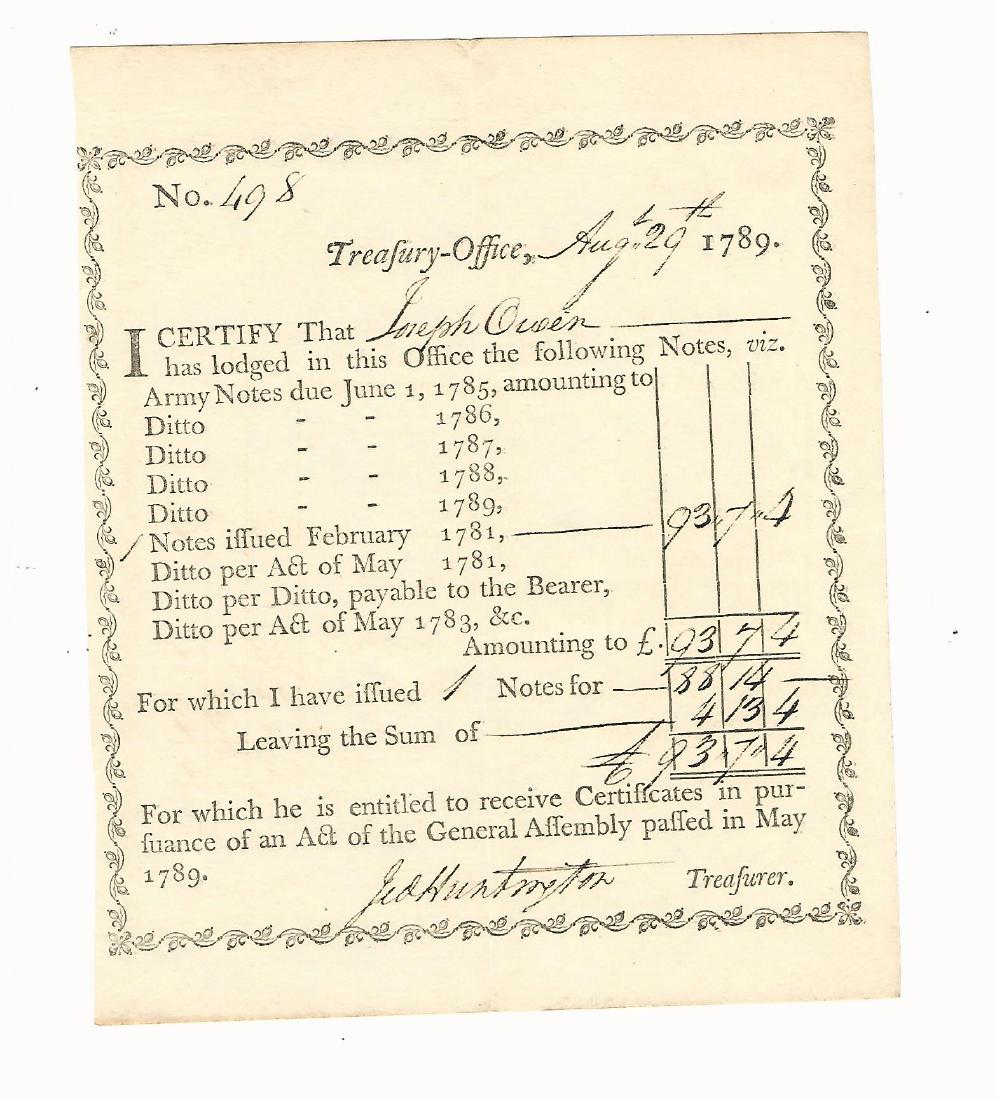 No. 498
Treaſury-Office, Augt. 29th 1789.
I CERTIFY That Joseph Owen
has lodged in this Office the following Notes, viz.
Army Notes due June 1, 1785, amounting to
Ditto - - 1786,
Ditto - - 1787,
Ditto - - 1788,
Ditto - - 1789,
/ Notes iſſued February 1781, — 93 " 7 " 4
Ditto per Act of May 1781,
Ditto per Ditto, payable to the Bearer,
Ditto per Act of May 1783, &c.
Amounting to £. 93 7 4
For which I have iſſued 1 Notes for — 88 14 —
Leaving the Sum of — 4 13 4
£ 93 " 7 " 4
For which he is entitled to receive Certificates in pur-
ſuance of an Act of the General Aſſembly paſſed in May
1789.
Jed Huntington Treaſurer.